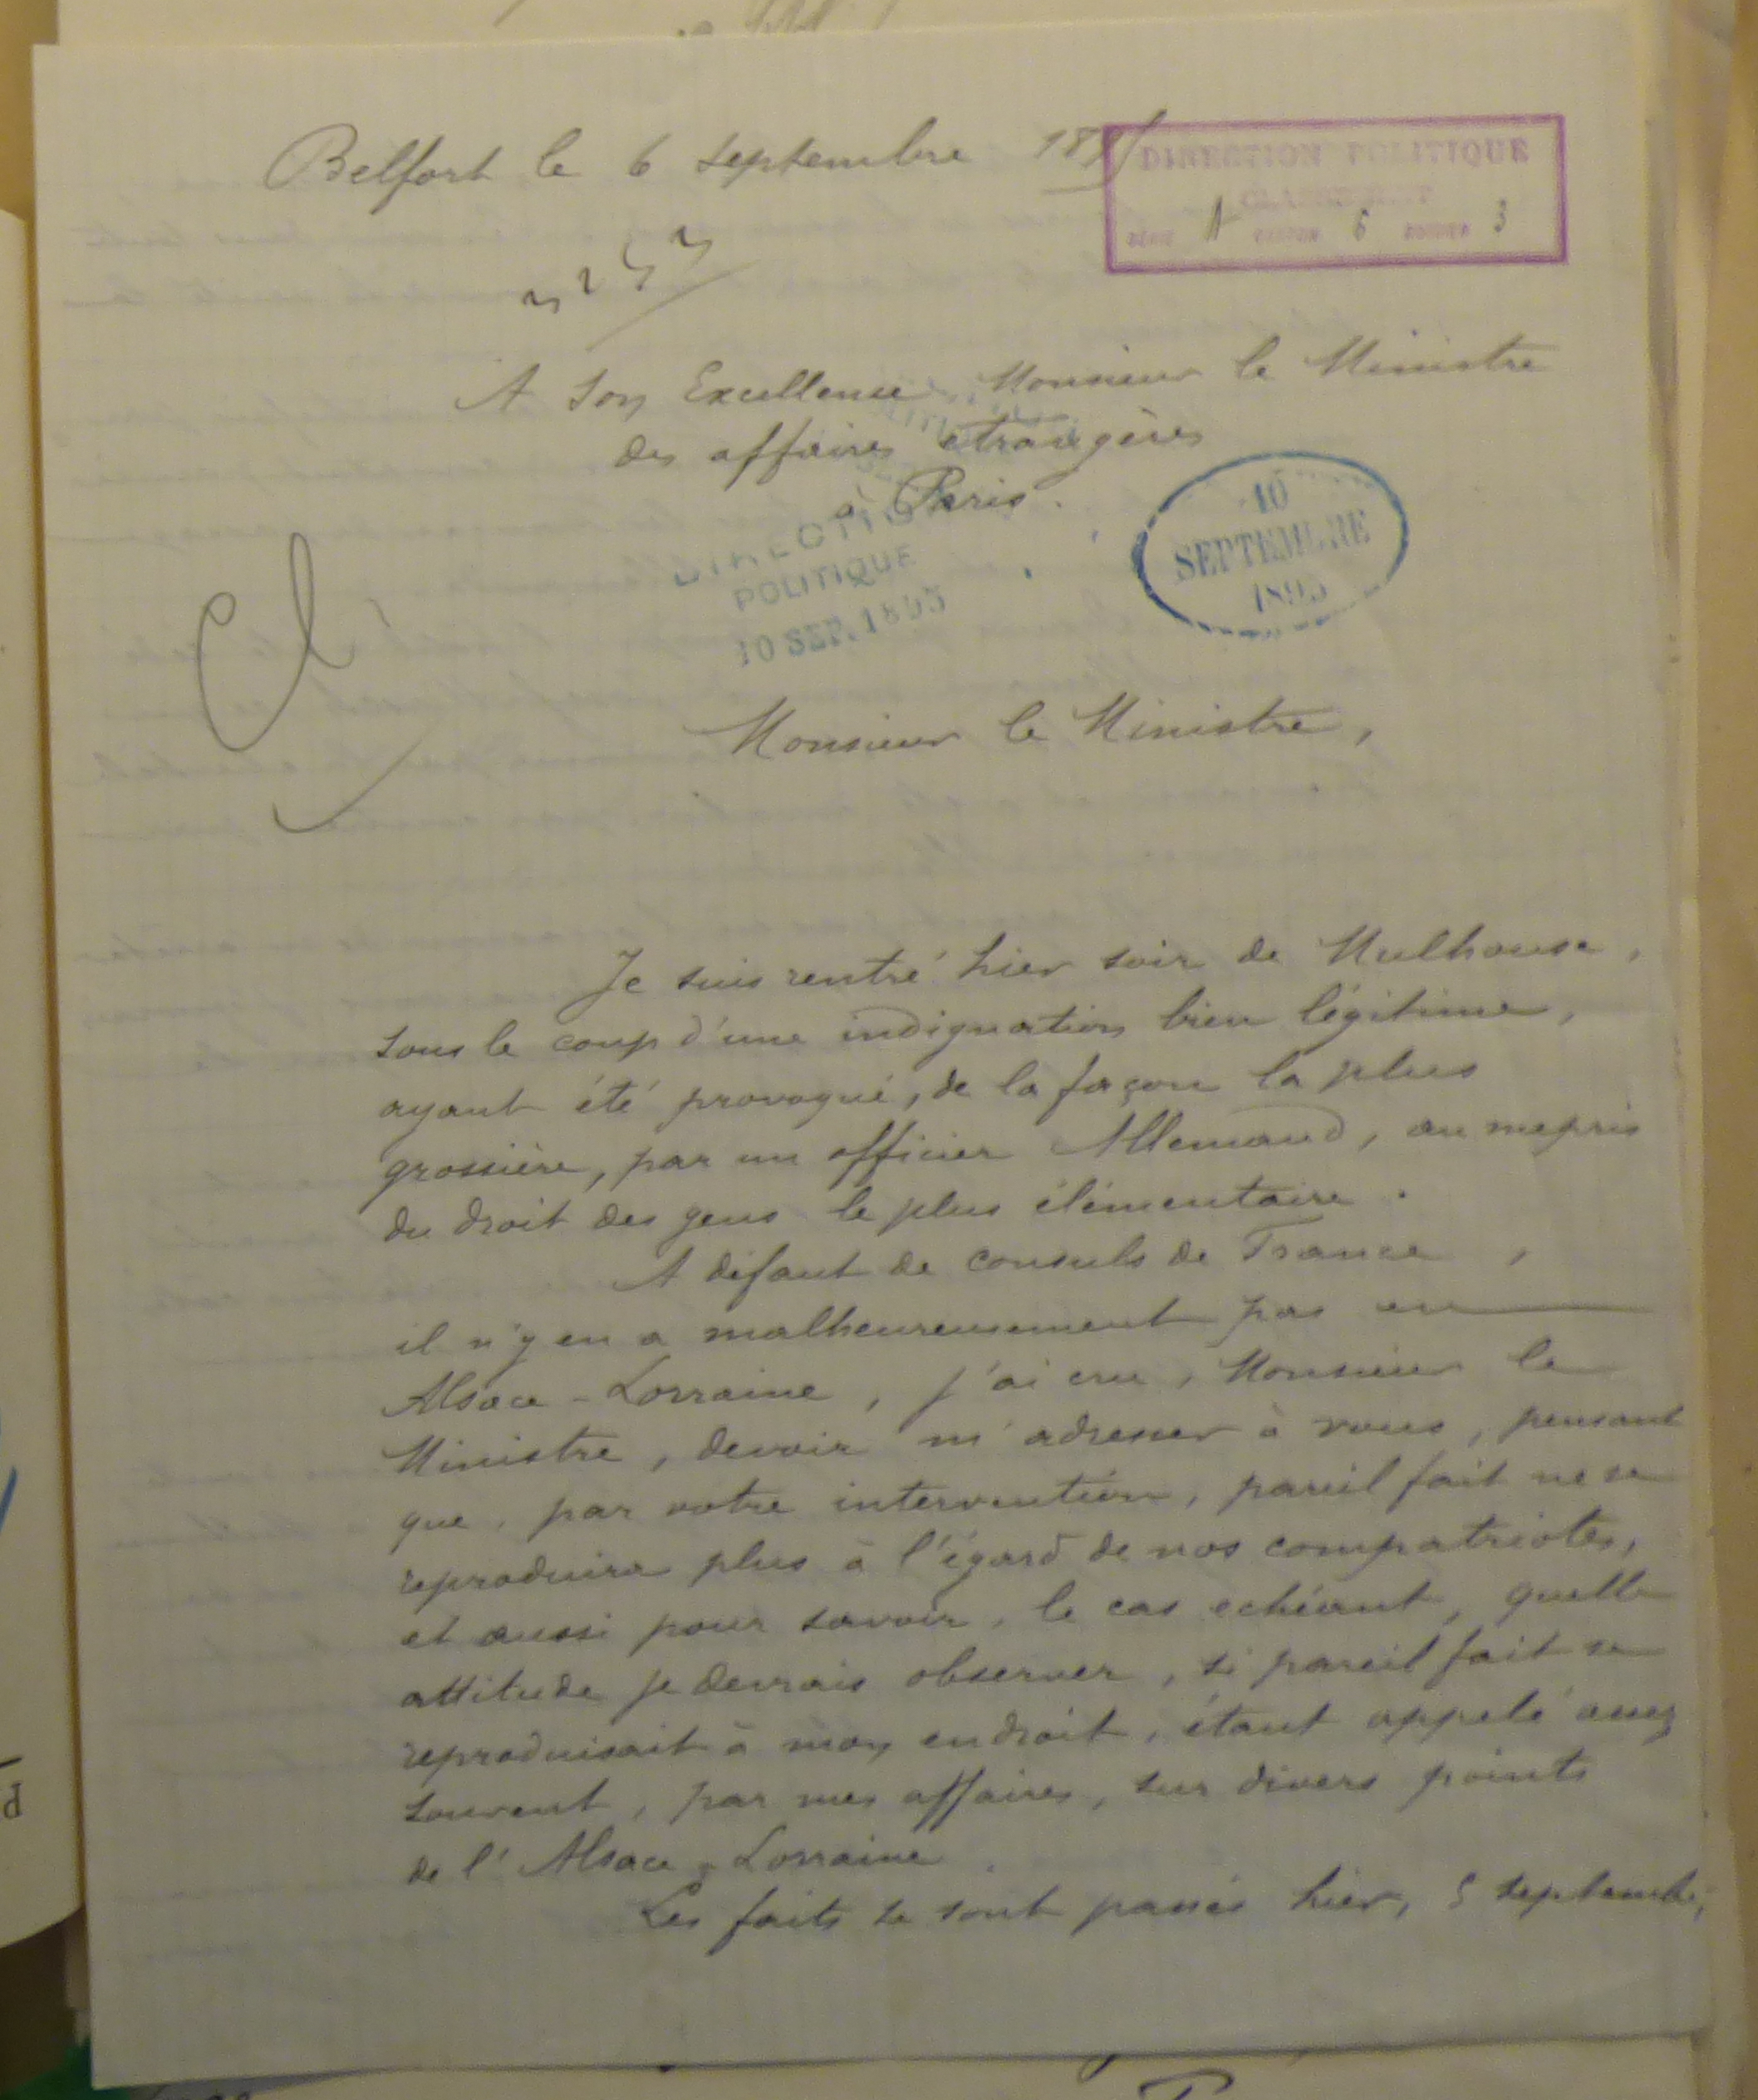 Belfort le 6 septembre 1895
DIRECTION POLITIQUE
CLASSEMENT
SÉRIE A CARTON 6 DOSSIER 3
A son Excellence, Monsieur le Ministre
des affaires etrangères
à Paris.
DIRECTION
POLITIQUE
10 SEP. 1895
10
SEPTEMBRE
1895
Monsieur le Ministre,
Je suis rentré hier soir de Mulhouse,
sous le coup d'une indignation bien légitime,
ayant été provoqué, de la façon la plus
grossière, par un officier Allemand, au mepris
du droit des gens le plus élémentaire.
A défaut de consuls de France,
il n'y en a malheureusement pas en
Alsace-Lorraine, j'ai cru, Monsieur le
Ministre, devoir m'adresser à vous, pensant
que, par votre intervention, pareil fait ne se
reproduira plus à l'égard de nos compatriotes,
et aussi pour savoir, le cas echéant, quelle
attitude je devrais observer, si pareil fait se
reproduisait à mon endroit, étant appelé assez
souvent, par mes affaires, sur divers points
de l'Alsace-Lorraine.
Les faits se sont passés hier, 5 septembre,